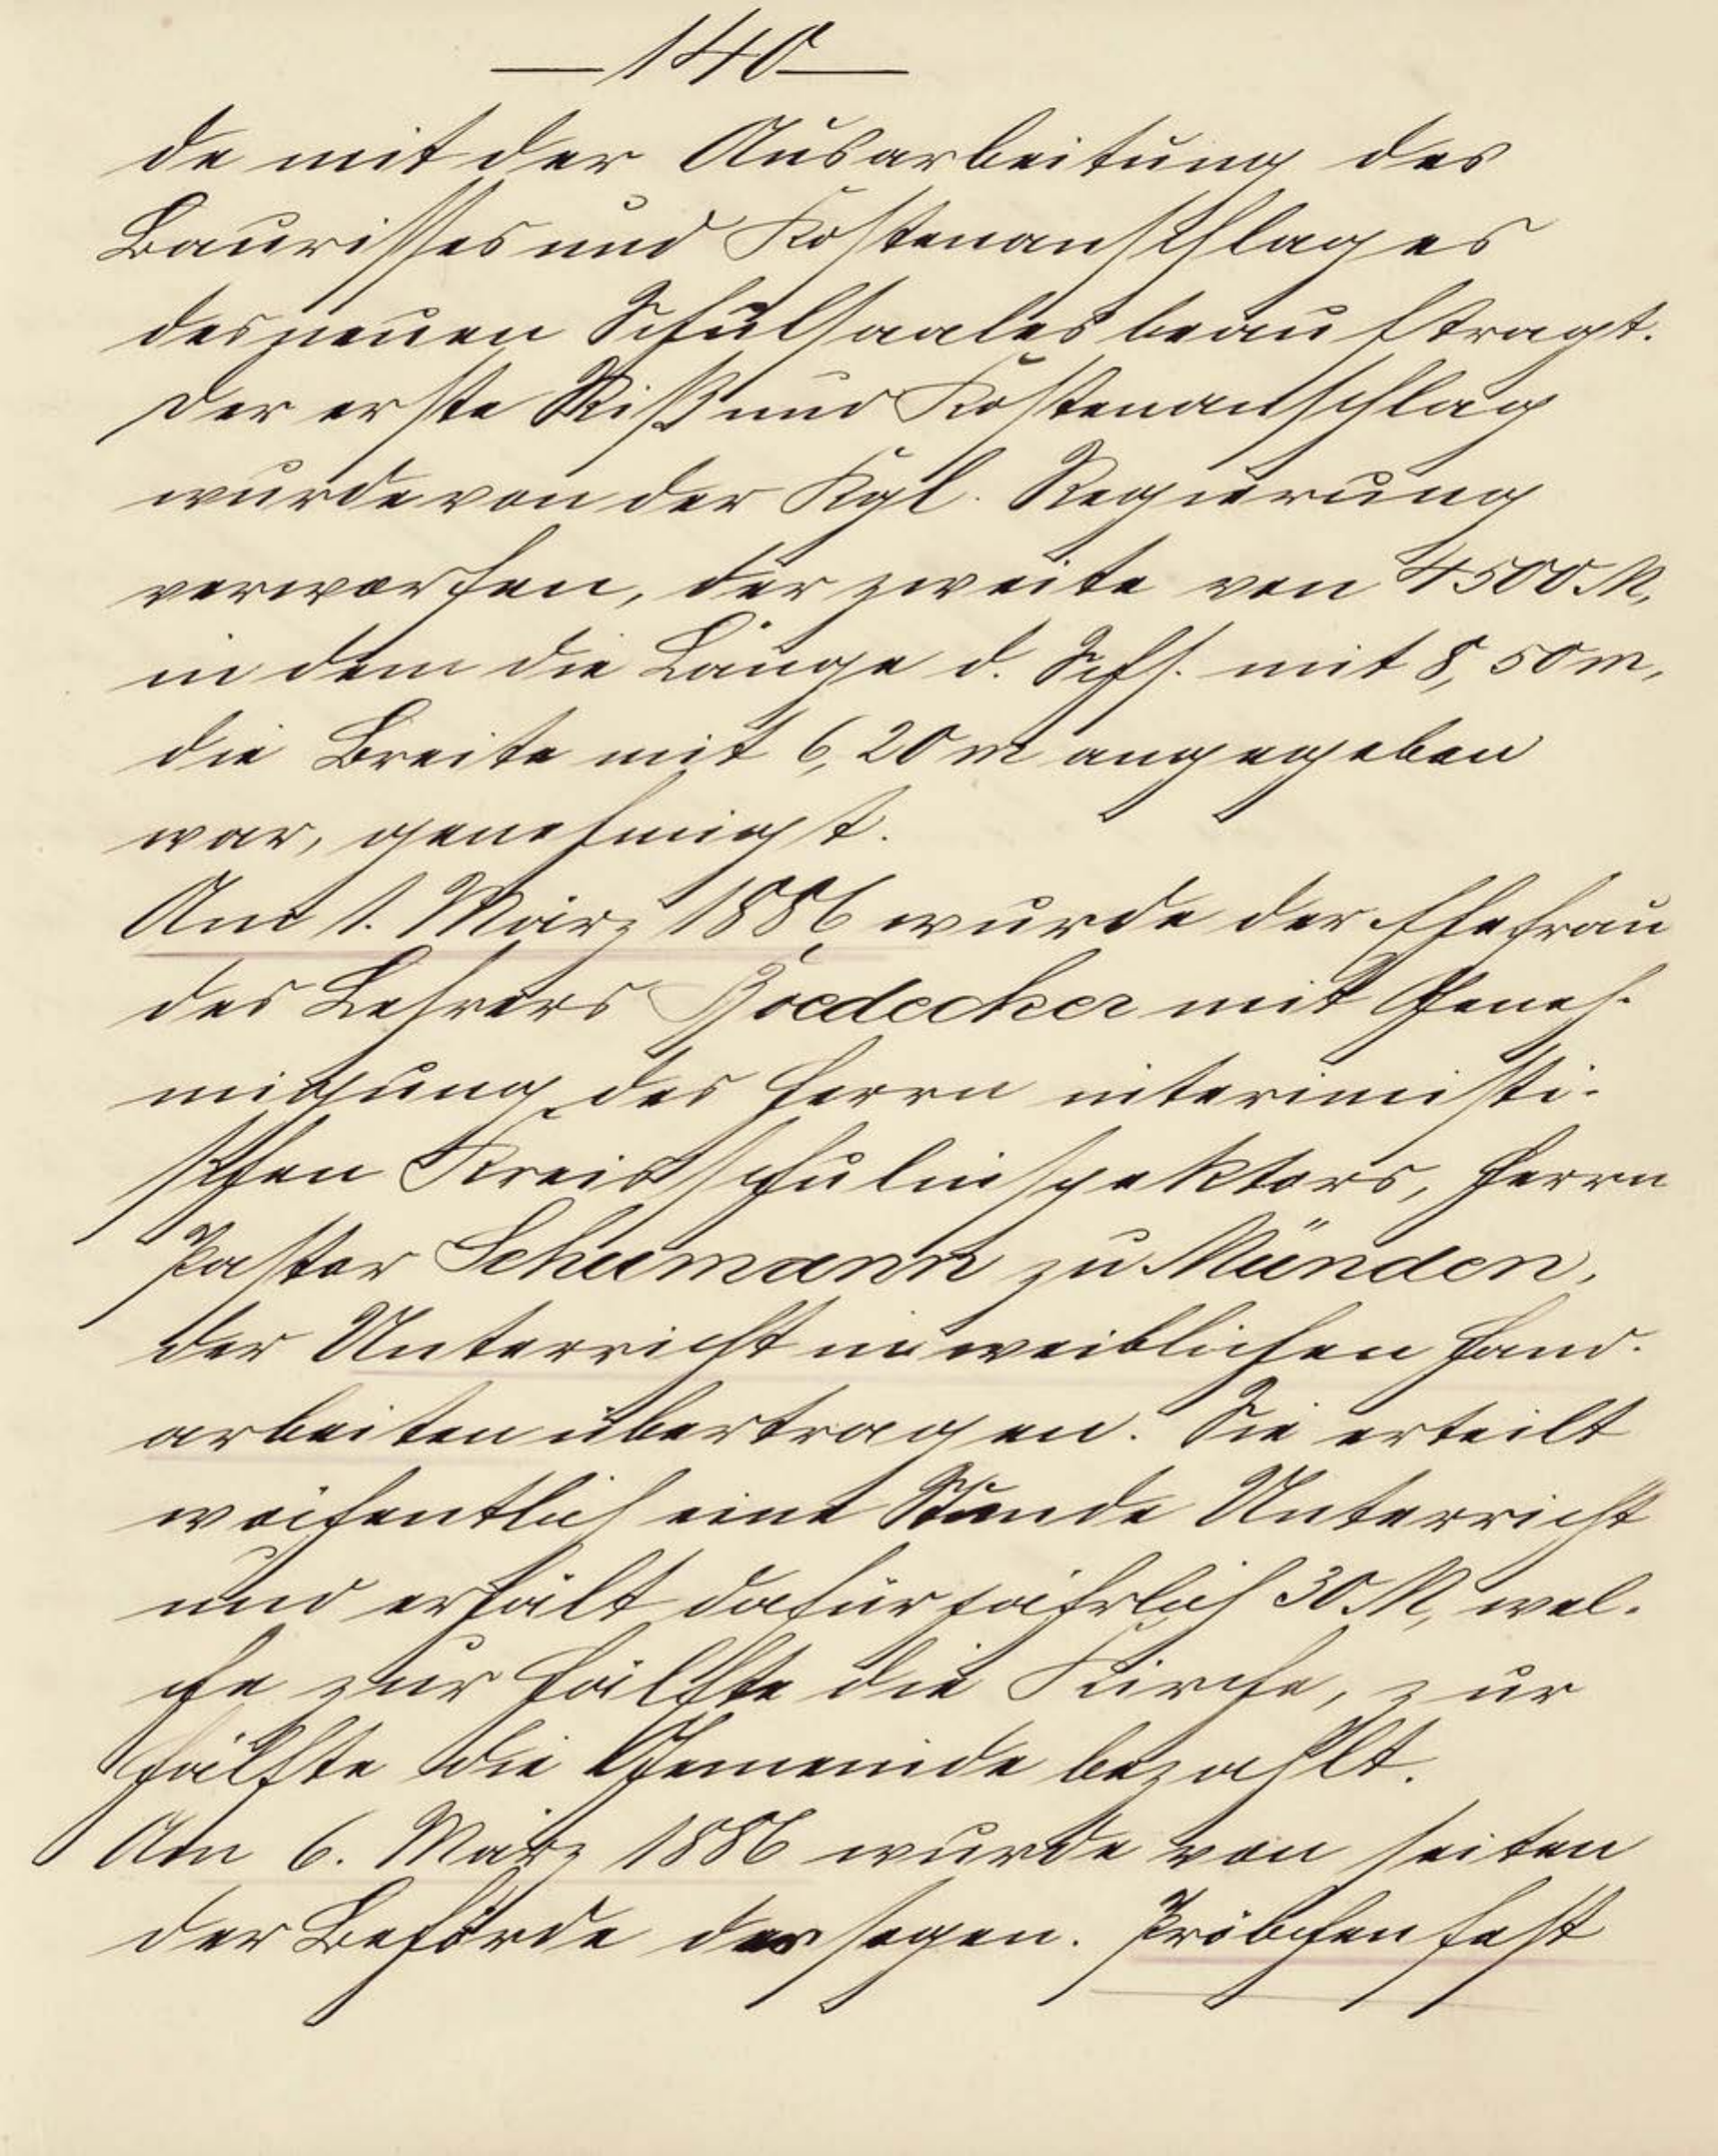 — 140 —
de mit der Ausarbeitung des
Baurisses und Kostenanschlages
des neuen Schulsaales beauftragt.
Der erste Riß und Kostenanschlag
wurde von der Kgl. Regierung
verworfen, der zweite von 4500 M,
in dem die Länge d. Schs. mit 8,50 m,
die Breite mit 6,20 m angegeben
war, genehmigt.
Am 1. März 1886 wurde der Ehefrau
des Lehrers Boedecker mit Geneh-
migung des Herrn interimisti-
schen Kreisschulinspektors, Herrn
Pastor Schumann zu Münden,
der Unterricht in weiblichen Hand-
arbeiten übertragen. Sie erteilt
wöchentlich eine Stunde Unterricht
und erhält dafür jährlich 30 M, wel-
che zur Hälfte die Kirche, zur
Hälfte die Gemeinde bezahlt.
Am 6. März 1886 wurde von seiten
der Behörde das sogen. Pröbchenfest